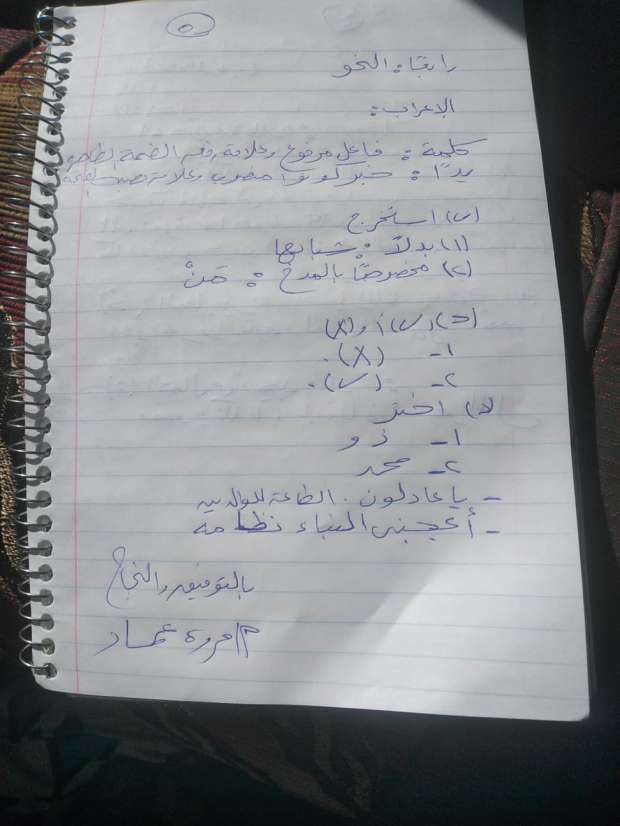 ٥
رابعًا: النحو
الإعراب:
كلمة: فاعل مرفوع وعلامة رفعه الضمة الظاهرة
يدًا: خبر كونوا منصوب وعلامة نصبه الفتحة
(ب) استخرج
(١) بدلاً: شبابها
(٢) مخصوصًا بالمدح: مَنْ
(ج) (✓) أو (X)
١- (X).
٢- (✓).
(د) اختر
١- ذو
٢- محمد
- يا عادلون. الطاعة للوالدين
- أعجبنى البناء نظامه
بالتوفيق والنجاح
م/مروة عماد